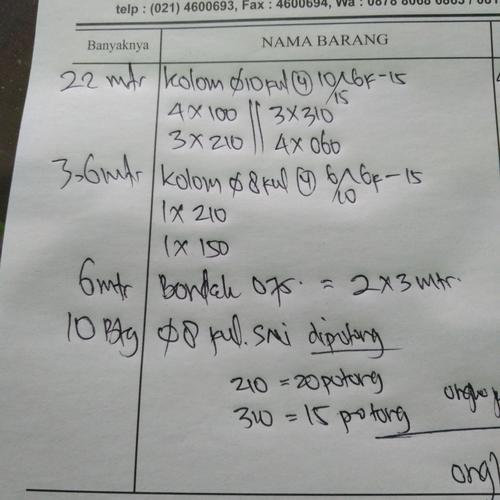 telp : (021) 4600693, Fax : 4600694, Wa : 0878 8068 6863 / 081
Banyaknya NAMA BARANG
22 mtr Kolom Ø10 kul (4) 10/15 x 6K-15
4 X 100 || 3 X 310
3 X 210 || 4 X 060
3,6 mtr Kolom Ø8 kul (4) 6/10 x 6K-15
1 X 210
1 X 150
6 mtr Bondek 075. = 2 X 3 mtr.
10 Btg Ø8 kul. SNI dipotong
210 = 20 potong
310 = 15 potong
ongkos
ong